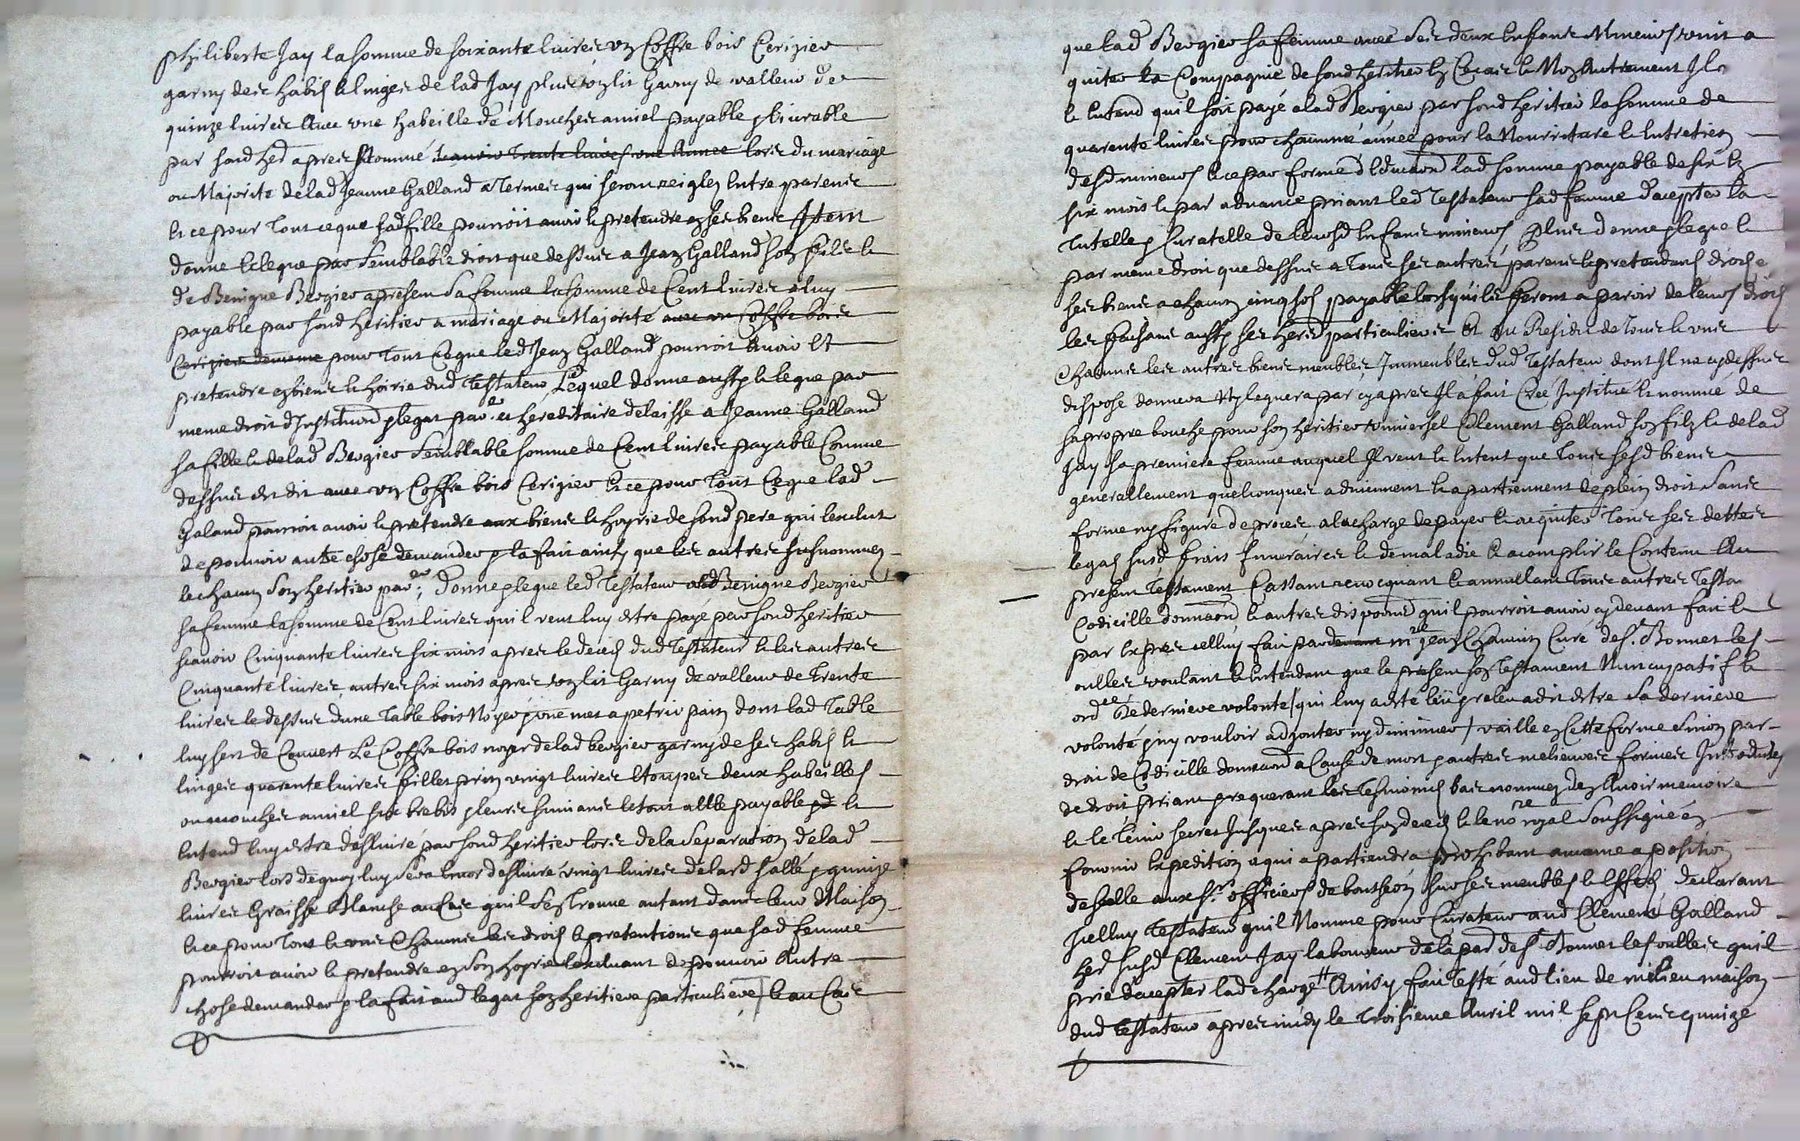 philiberte Jay la somme de soixante livres un Coffre bois Cerizier
garny de ses habis & linges de lad Jay plus un lit Garny de valleur de
quinze livres Avec une habeille de Mouches amiel payable & livrable
par sond her apres nommé scavoir trente livres une Année lors du mariage
ou Majorité de lad Jeanne Galland a Termes qui seront reiglés Entre parens
& ce pour Tout ce que sad fille pourroit avoir & pretendre en ses biens Item
donne & legue par semblable droit que dessus a Jean Galland son fils &
de Benigne Bergier a present sa femme la somme de Cent livres a luy
payable par sond heritier a mariage ou Majorité avec un Coffre bois
Cerizier de meme pour Tout Ce que led Jean Galland pourroit Avoir Et
pretendre en biens & hoirie dud Testateur Lequel donne aussy & legue par
meme droit d'Institution & legat par & hereditaire delaisse a Jeanne Galland
sa fille & de lad Bergier Semblable somme de Cent livres payable Comme
dessus est dit avec un Coffre bois Cerizier & ce pour Tout Ce que lad
Galand pourroit avoir & pretendre aux biens & hoyrie de sond pere qui lexclut
de pouvoir autre chose demander & la fait ainsy que les autres susnommés
& chacun son heritier par; donne & legue led Testateur a lad Benigne Bergier
sa femme la somme de Cent livres qu'il veut luy estre payé par sond heritier
scavoir Cinquante livres six mois apres le deces dud Testateur & les autres
Cinquante livres autres six mois apres un lit Garny de valleur de Trente
livres le dessus d'une Table bois Noyer & une met a petrir pain dont lad Table
luy sert de Couvert Le Coffre bois noyer de lad bergier garny de ses habis &
linges quarente livres fillet prin vingt livres Etoupes deux habeilles
ou mouches amiel six brebis & leurs suivans & le tout a elle payable &
Entend luy estre deslivré par sond heritier lors de la Separation de lad
Bergier lors de quoy luy sera Encor deslivré vingt livres de lard sallé & quinze
livres Graisse blanche au Cas qu'il s'en Trouve autant dans leur Maison
& ce pour Tout & uns Chacuns les drois & pretentions que sad femme
pourroit avoir & pretendre en son hoyrie lexcluant de pouvoir Autre
chose demander & la fait aud legat son heritiere particuliere / & au Cas
que lad Bergier sa femme avec Ses deux Enfans Mineurs vint a
quiter la Compagnie de sond heritier En Ce cas & Non Autrement Il
& Entend qu'il soit payé a lad Bergier par sond heritier la somme de
quarente livres pour chacune année pour la Nourriture & Entretien
desd mineurs & ce par forme d'Education lad somme payable de six En
six mois & par advance priant led Testateur sad femme d'accepter la
Tutelle & Curatelle de leursd Enfans mineurs Plus donne & legue &
par meme droit que dessus a Tous ses autres parens & pretendans drois en
ses biens a chacun cinq sols payable lorsqu'ils feront aparoir de leurs drois
les faisant aussy ses hers particuliers Et Au Residu de Tous & uns
Chacuns les autres biens meubles Immeubles dud Testateur dont Il na cy dessus
dispose donnera ny leguera par cy apres Il a fait Créé Institué & nommé de
sa propre bouche pour son heritier universel Clement Galland son filz & de lad
Jay sa premiere femme auquel Il veut & Entent que Tous sesd biens
generallement quelconques adviennent & apartiennent de plein droit Sans
forme ny figure de proces a la charge de payer & acquiter Tous ses dettes
legas susd frais funeraires & de maladie & acomplir le Contenu Au
present Testament Cassant revocquant & annullant Tous autres Testa
Codicille donnaon & autres dispoons qu'il pourroit avoir cy devant fait &
par Expres celluy fait par devant mre Jean Chamin Curé de St Bonnet les
oulles voulant & Entendant que le present son Testament Nuncupatif &
ordce de derniere volonté / qui luy a esté leu & releu a dit estre Sa derniere
volonté & ny vouloir adjouter ny diminuer / vaille en Cette forme Sinon par
droit de Codicille donnaon a Cause de mort & autres melieures formes Introduites
de droit priant & requerant les Tesmoins bas nommez den Avoir memoire
& le Tenir secret Jusques apres son deces & le nore royal Soussigné en
fournir Expedition a qui apartiendra prohibant aucune aposition
de scelle aux Srs officiers de bontheon sur ses meubles & Effects Declarant
Icelluy Testateur qu'il Nomme pour Curateur aud Clement Galland
her susd Clement Jay laboureur de la par de St Bonnet les oulles qu'il
prie daccepter lad charge Ainsy fait Testé aud lieu de milieu maison
dud Testateur apres midy le Troisieme Avril mil sept Cens quinze